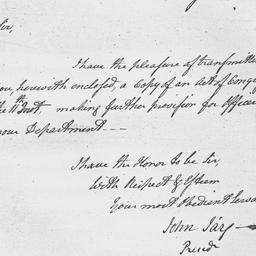 Sir,
I have the pleasure of transmitting
you, herewith enclosed, a Copy of an Act of Congress
the 11th Inst. making further provision for Officers
your Department —
I have the Honor to be Sir,
With Respect & Esteem
Your most Obedient Serva
John Jay
Presid